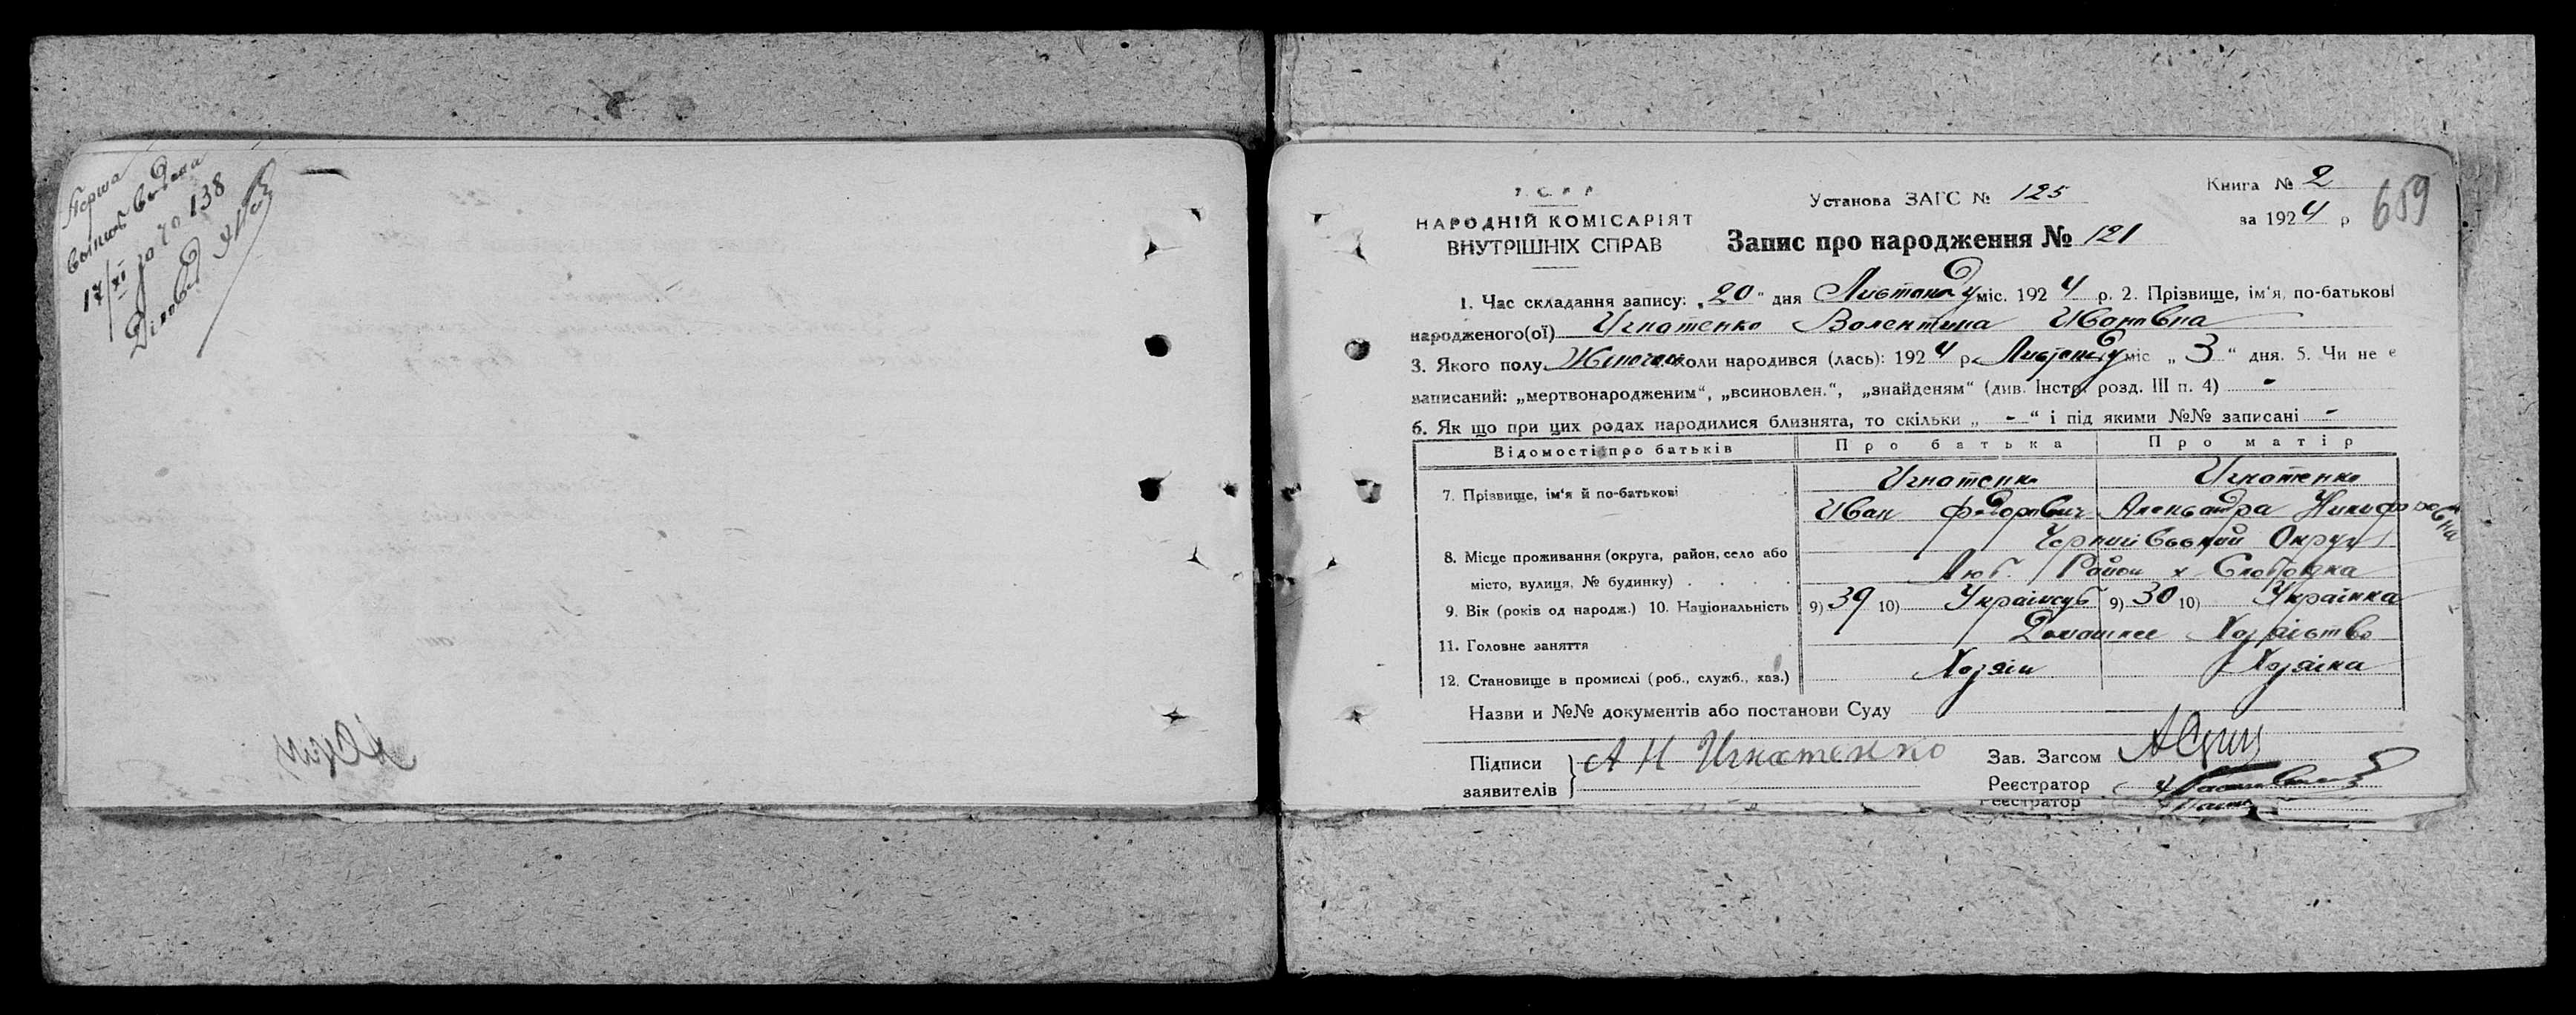 Перша
выпись выдана
17/XI за № 138
Діловод
У.С.Р.Р.
НАРОДНІЙ КОМІСАРІЯТ
ВНУТРІШНІХ СПРАВ
Установа ЗАГС № 125
Книга № 2
за 1924 р
659
Запис про народження № 121
1. Час складання запису: „20" дня Листопаду міс. 1924 р. 2. Прізвище, ім'я, по-батькові
народженого(ої) Игнатенко Валентина Ивановна
3. Якого полу Жіночого коли народився (лась): 1924 р. Листопаду міс „3" дня. 5. Чи не є
записаний: „мертвонародженим", „всиновлен.", „знайденям" (див. Інстр. розд. III п. 4) -
6. Як що при цих родах народилися близнята, то скільки „-" і під якими №№ записані -
Відомості про батьків Про батька Про матір
7. Прізвище, ім'я й по-батькові Игнатенко Игнатенко
Иван Федорович Александра Никифоровна
8. Місце проживання (округа, район, село або Округ
місто, вулиця, № будинку) Люб. Район х Слободка
9. Вік (років од народж.) 10. Національність 9) 39 10) Украінець 9) 30 10) Украінка
11. Головне заняття Домашнее Хозяйство
12. Становище в промислі (роб., служб., хаз.) Хозяін Хозяіка
Назви и №№ документів або постанови Суду
Підписи А Н Игнатенко Зав. Загсом
заявителів Реєстратор
Реєстратор